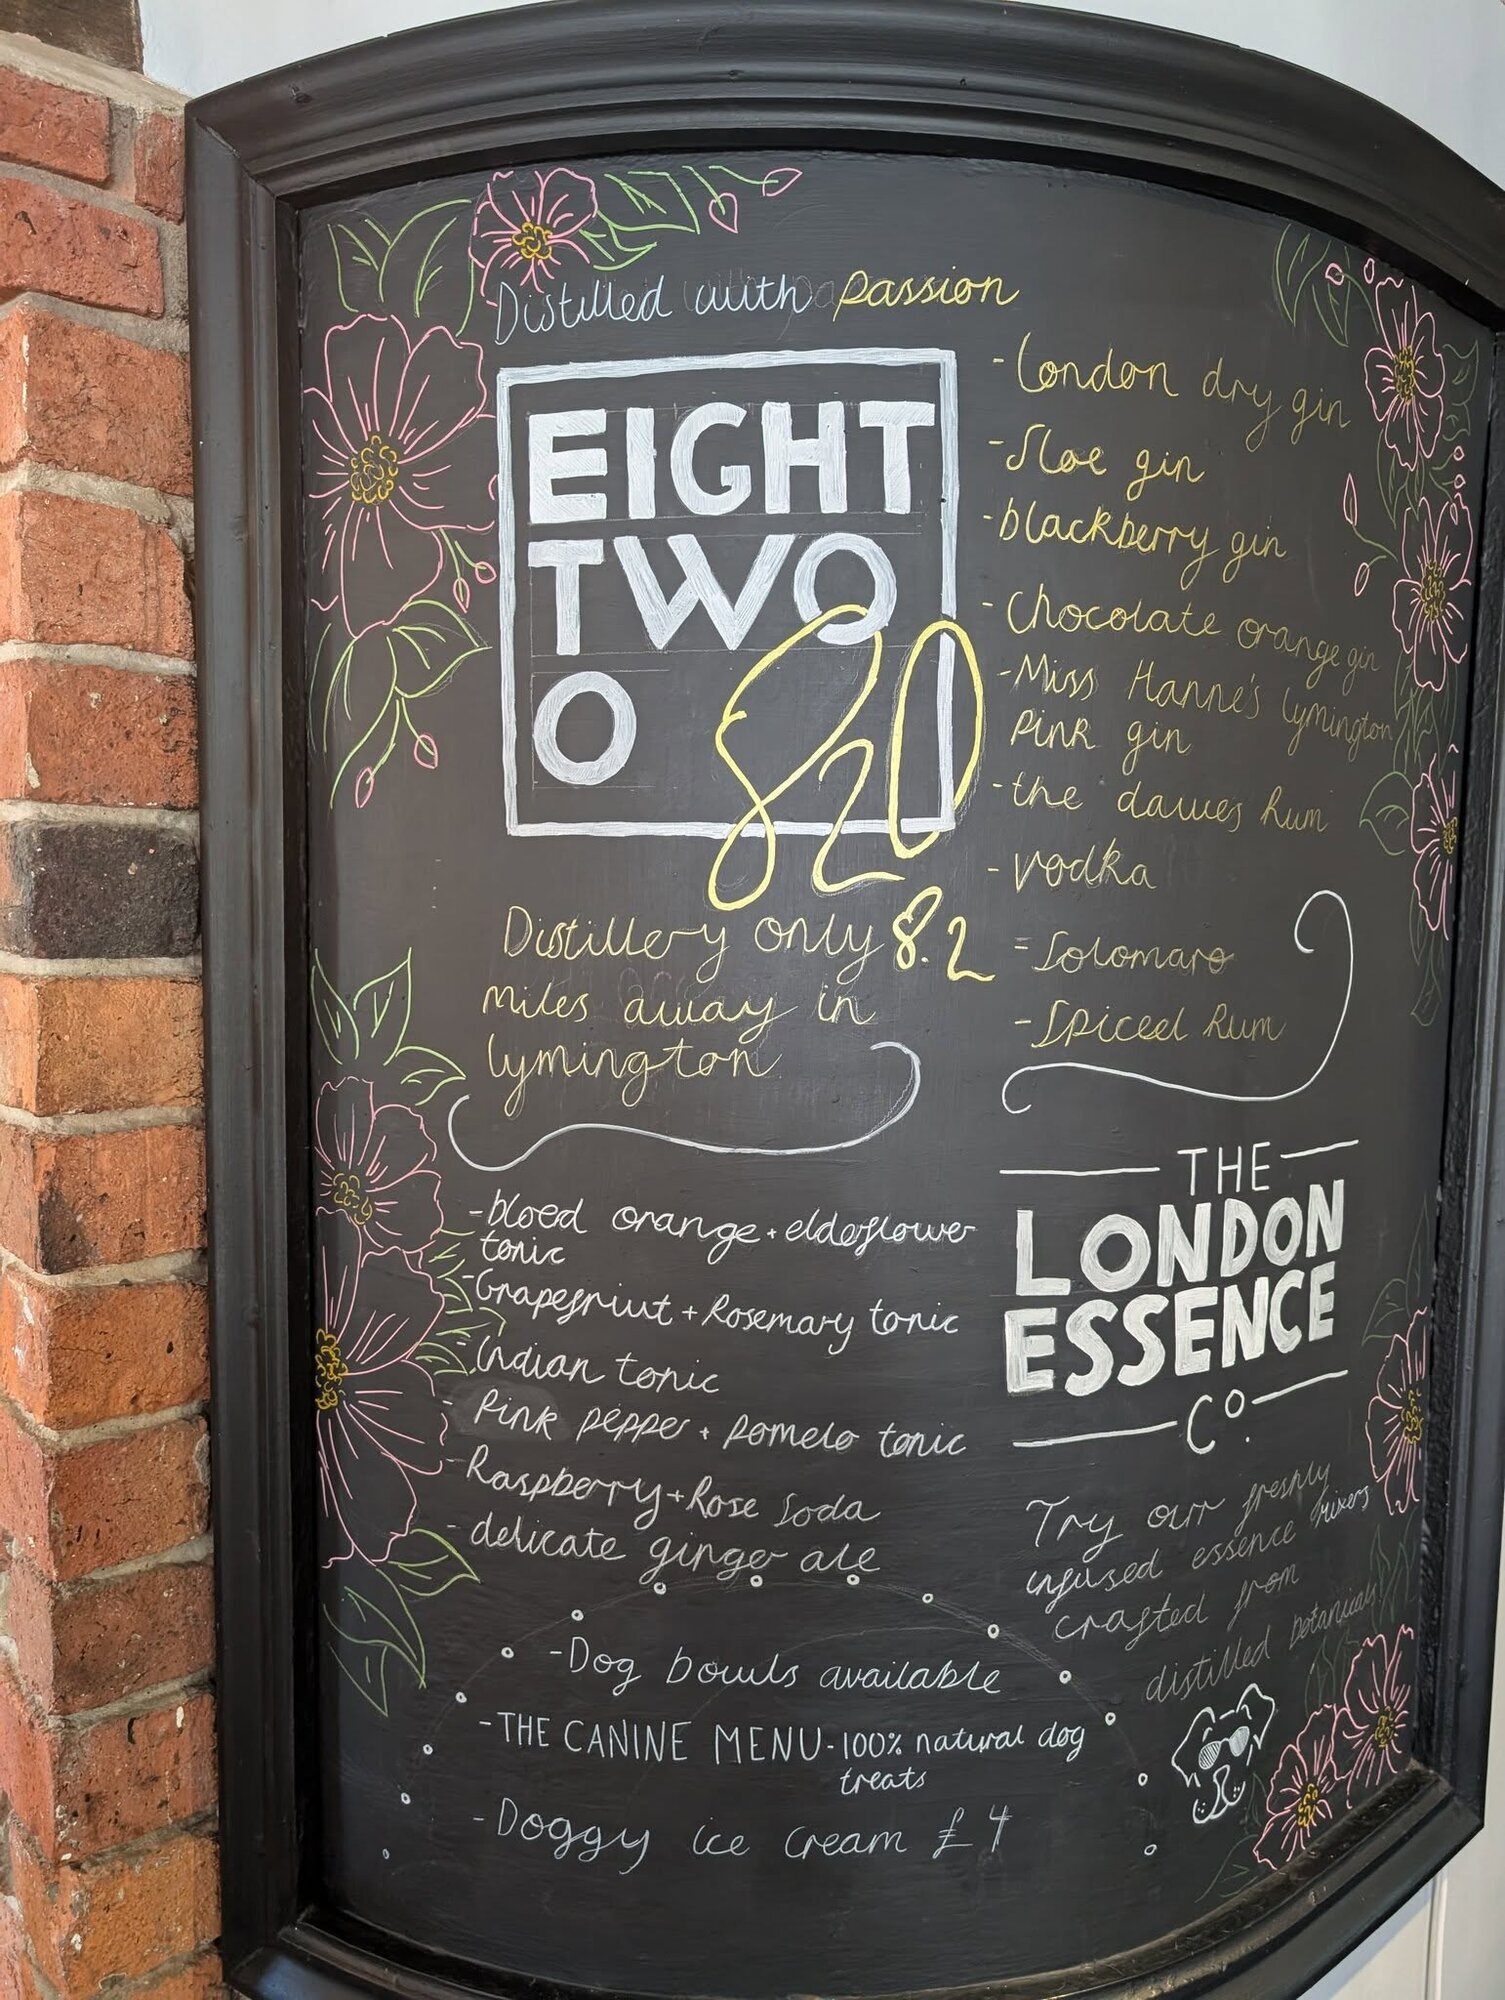 Distilled with passion
EIGHT
TWO
O
820
Distillery only 8.2
miles away in
lymington
- London dry gin
- Sloe gin
- blackberry gin
- Chocolate orange gin
- Miss Hanne's lymington
pink gin
- the dawes Rum
- vodka
- Solomaro
- Spiced Rum
- bloed orange + elderflower
tonic
- Grapefriut + Rosemary tonic
- Indian tonic
- Pink pepper + pomelo tonic
- Raspberry + Rose Soda
- delicate ginger ale
THE
LONDON
ESSENCE
Co.
Try our freshly
infused essence mixers
crafted from
distilled botanicals
- Dog bowls available
- THE CANINE MENU - 100% natural dog
treats
- Doggy ice cream £4